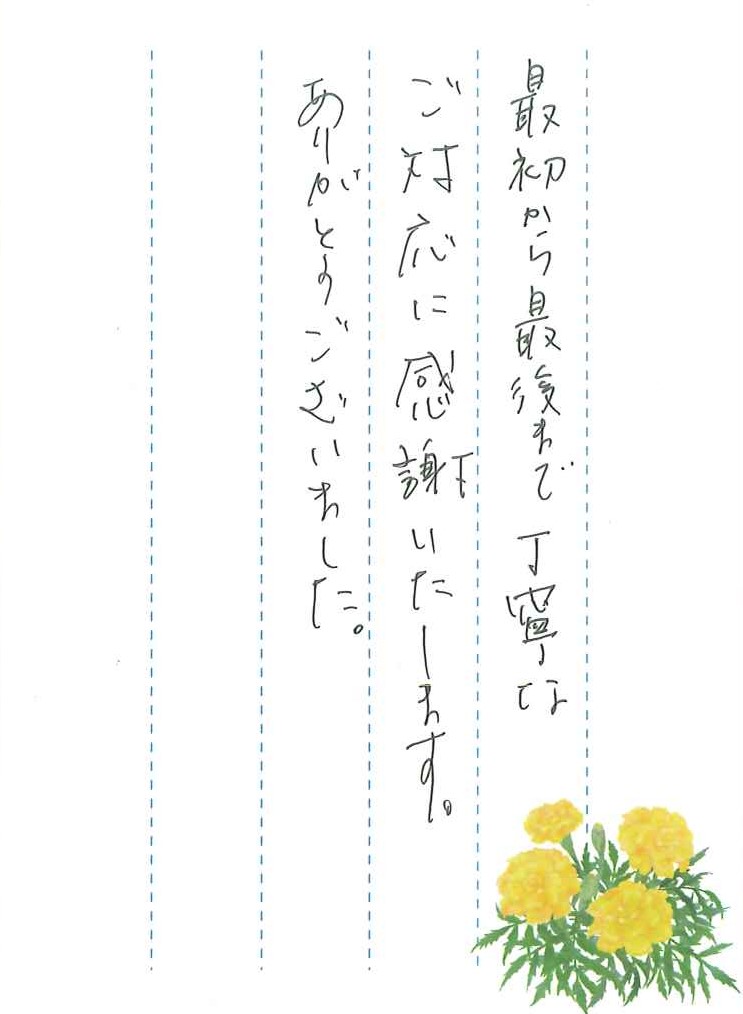 最初から最後まで丁寧な
ご対応に感謝いたします。
ありがとうございました。